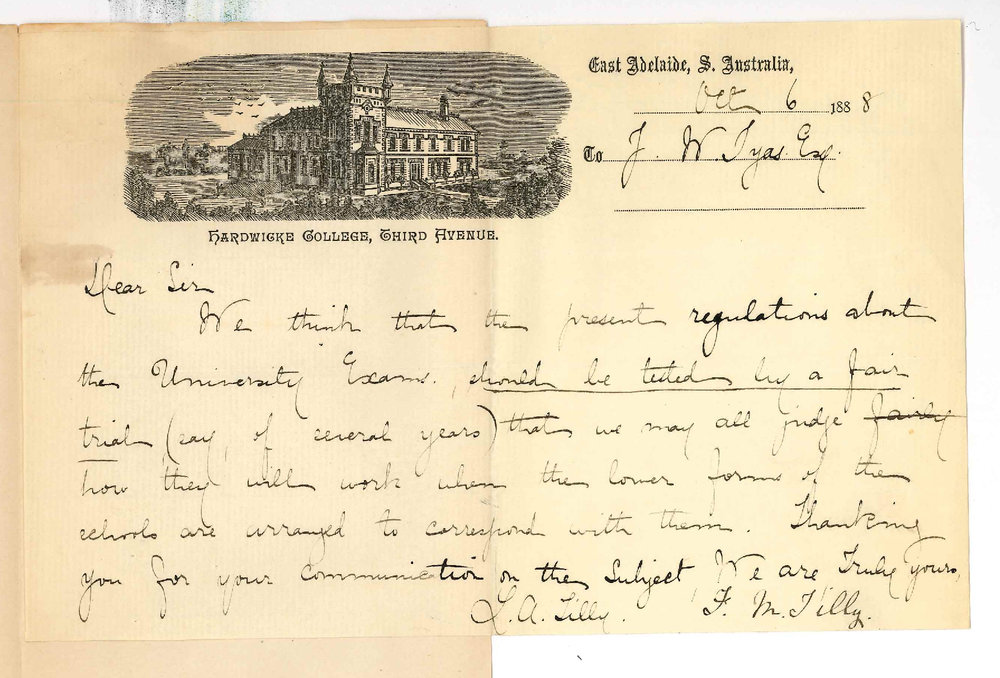 East Adelaide, S. Australia,
Oct 6 1888
To J. W. Tyas. Esq.
HARDWICKE COLLEGE, THIRD AVENUE.
Dear Sir
We think that the present regulations about
the University Exams., should be tested by a fair
trial (say, of several years) that we may all judge fairly
how they will work when the lower forms of the
schools are arranged to correspond with them. Thanking
you for your communication on the Subject, We are, Truly yours,
L. A. Tilly. F. M. Tilly.